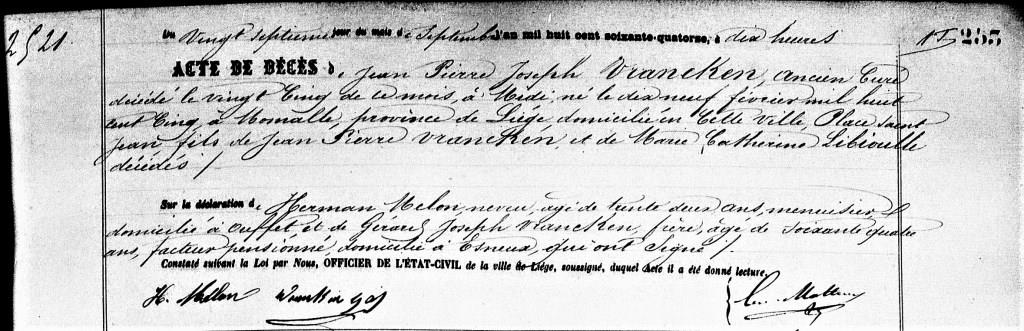 2521.
Du vingt septième jour du mois de Septembre l'an mil huit cent soixante-quatorze, à dix heures
257
ACTE DE DÉCÈS de Jean Pierre Joseph Vrancken, ancien Curé
décédé le vingt Cinq de ce mois, à Midi, né le dix neuf février mil huit
cent Cinq, à Momalle, province de Liége domicilié en Cette Ville, Place Saint
Jean, fils de Jean Pierre Vrancken et de Marie Catherine Libioulle
décédés /
Sur la déclaration de Herman Melon, neveu, agé de trente deux ans, menuisier
domicilié à Ouffet et de Gérard Joseph Vrancken, frère, âgé de Soixante quatre
ans, facteur pensionné, domicilié à Esneux, qui ont signé /.
Constaté suivant la Loi par Nous, OFFICIER DE L'ÉTAT-CIVIL de la ville de Liége, soussigné, duquel Acte il a été donné lecture.
H. Melon